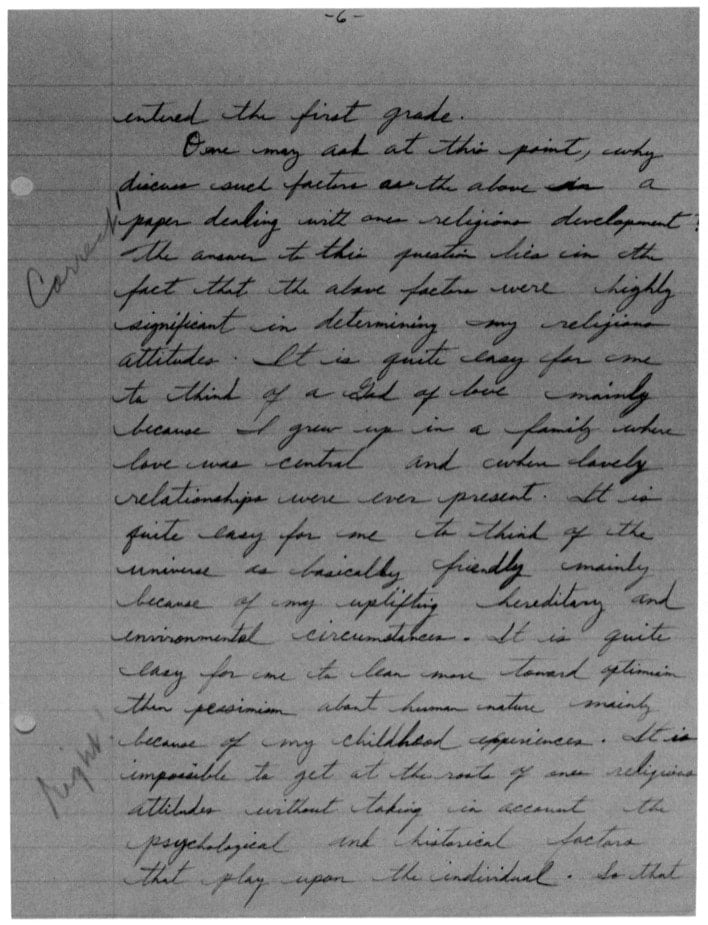 -6-
entered the first grade.
One may ask at this point, why
discuss such factors as the above in a
paper dealing with ones religious development?
Correct!
The answer to this question lies in the
fact that the above factors were highly
significant in determining my religious
attitudes. It is quite easy for me
to think of a God of love mainly
because I grew up in a family where
love was central and where lovely
relationships were ever present. It is
quite easy for me to think of the
universe as basically friendly mainly
because of my uplifting hereditary and
environmental circumstances. It is quite
easy for me to lean more toward optimism
then pessimism about human nature mainly
because of my childhood experiences. It is
Right!
impossible to get at the roots of ones religious
attitudes without taking in account the
psychological and historical factors
that play upon the individual. So that